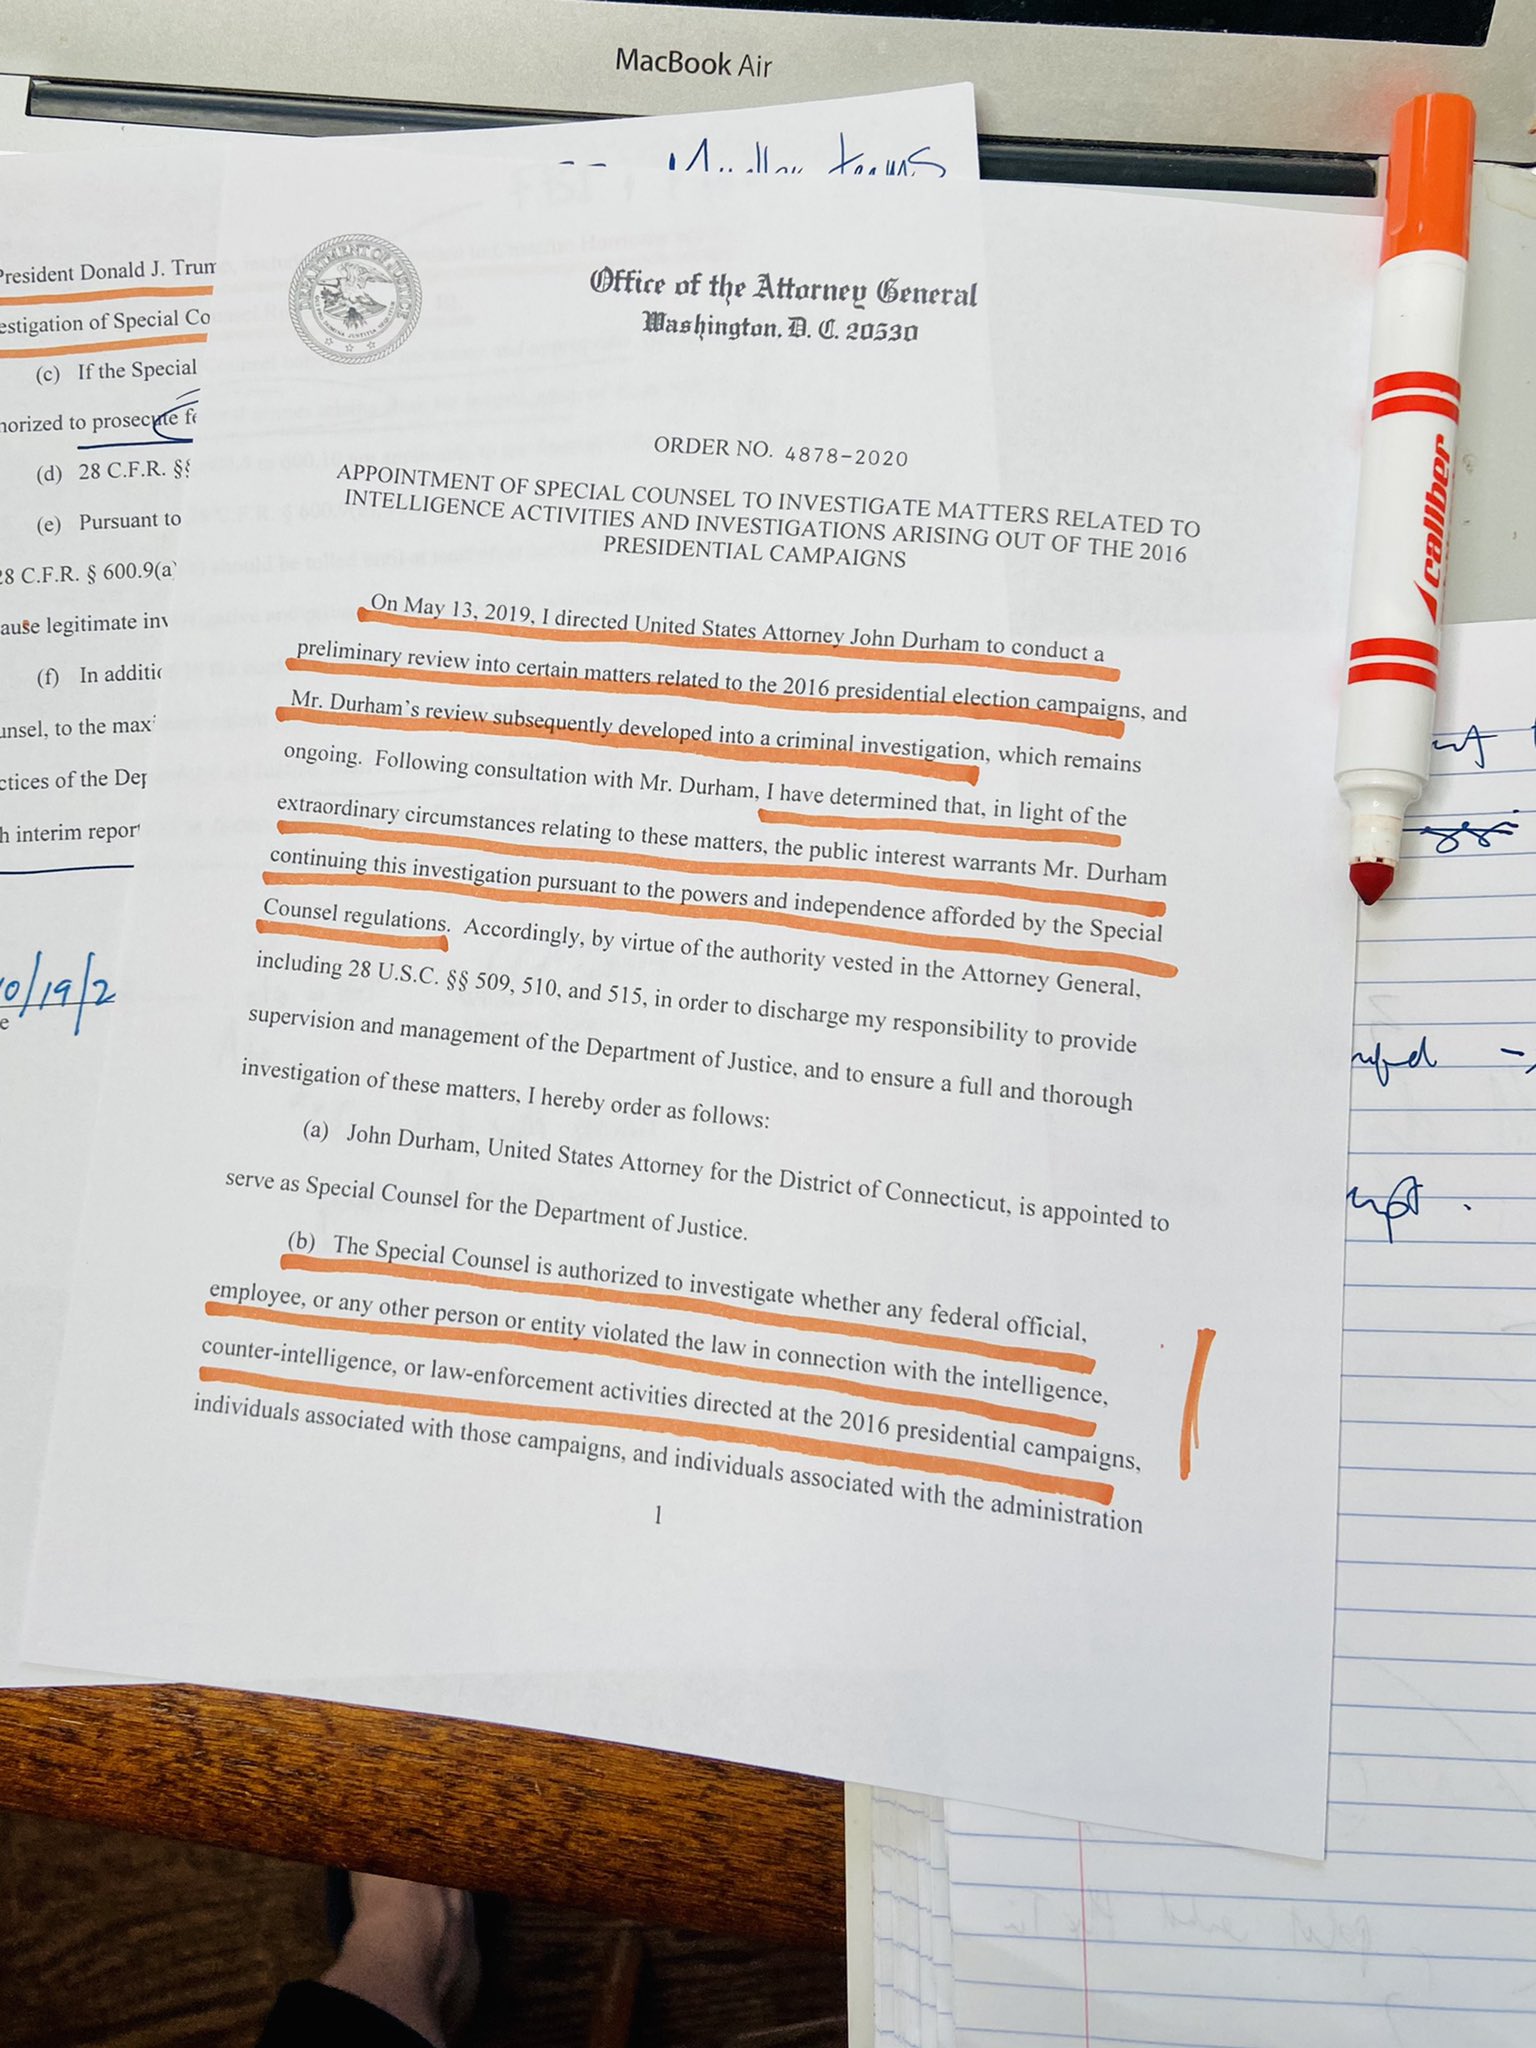 MacBook Air
DEPARTMENT OF JUSTICE
Office of the Attorney General
Washington, D. C. 20530
ORDER NO. 4878-2020
APPOINTMENT OF SPECIAL COUNSEL TO INVESTIGATE MATTERS RELATED TO
INTELLIGENCE ACTIVITIES AND INVESTIGATIONS ARISING OUT OF THE 2016
PRESIDENTIAL CAMPAIGNS
On May 13, 2019, I directed United States Attorney John Durham to conduct a
preliminary review into certain matters related to the 2016 presidential election campaigns, and
Mr. Durham's review subsequently developed into a criminal investigation, which remains
ongoing. Following consultation with Mr. Durham, I have determined that, in light of the
extraordinary circumstances relating to these matters, the public interest warrants Mr. Durham
continuing this investigation pursuant to the powers and independence afforded by the Special
Counsel regulations. Accordingly, by virtue of the authority vested in the Attorney General,
including 28 U.S.C. §§ 509, 510, and 515, in order to discharge my responsibility to provide
supervision and management of the Department of Justice, and to ensure a full and thorough
investigation of these matters, I hereby order as follows:
(a) John Durham, United States Attorney for the District of Connecticut, is appointed to
serve as Special Counsel for the Department of Justice.
(b) The Special Counsel is authorized to investigate whether any federal official,
employee, or any other person or entity violated the law in connection with the intelligence,
counter-intelligence, or law-enforcement activities directed at the 2016 presidential campaigns,
individuals associated with those campaigns, and individuals associated with the administration
1
President Donald J. Trum
estigation of Special Co
(c) If the Special
horized to prosecute fe
(d) 28 C.F.R. §§
(e) Pursuant to
28 C.F.R. § 600.9(a)
ause legitimate inv
(f) In additio
unsel, to the max
ctices of the Dep
h interim report
0/19/2
e
caliber